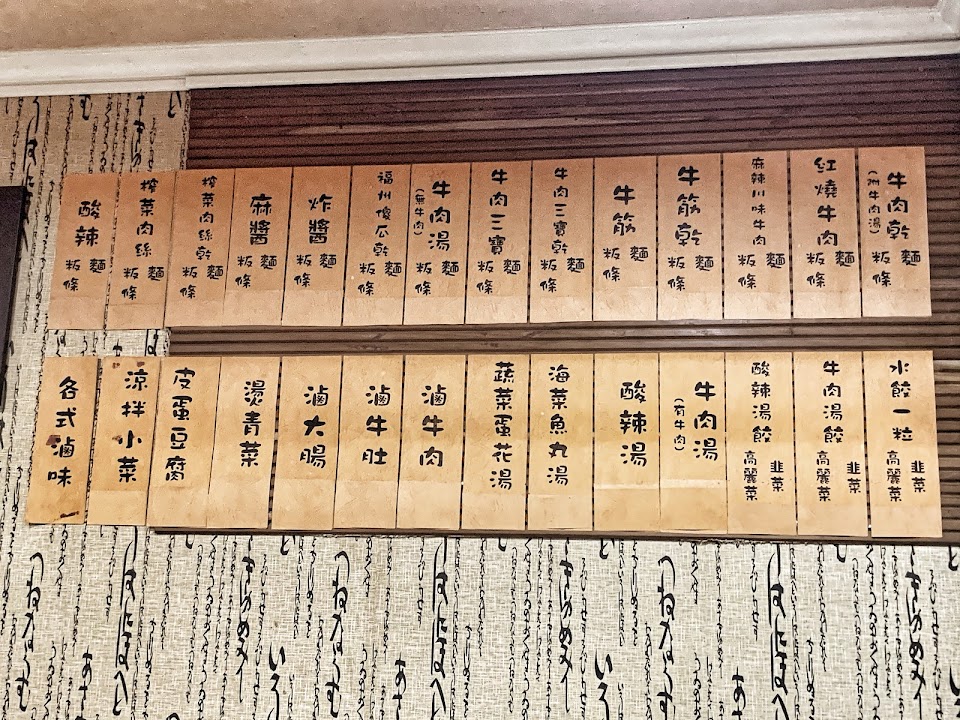 牛肉乾麵 粄條
(附牛肉湯)
紅燒牛肉麵 粄條
麻辣川味牛肉麵 粄條
牛筋乾麵 粄條
牛筋麵 粄條
牛肉三寶乾麵 粄條
牛肉三寶麵 粄條
牛肉湯麵 粄條
(無牛肉)
福州傻瓜乾麵 粄條
炸醬麵 粄條
麻醬麵 粄條
榨菜肉絲乾麵 粄條
榨菜肉絲麵 粄條
酸辣麵 粄條
水餃一粒 韭菜 高麗菜
牛肉湯餃 韭菜 高麗菜
酸辣湯餃 韭菜 高麗菜
牛肉湯
(有牛肉)
酸辣湯
海菜魚丸湯
蔬菜蛋花湯
滷牛肉
滷牛肚
滷大腸
燙青菜
皮蛋豆腐
涼拌小菜
各式滷味